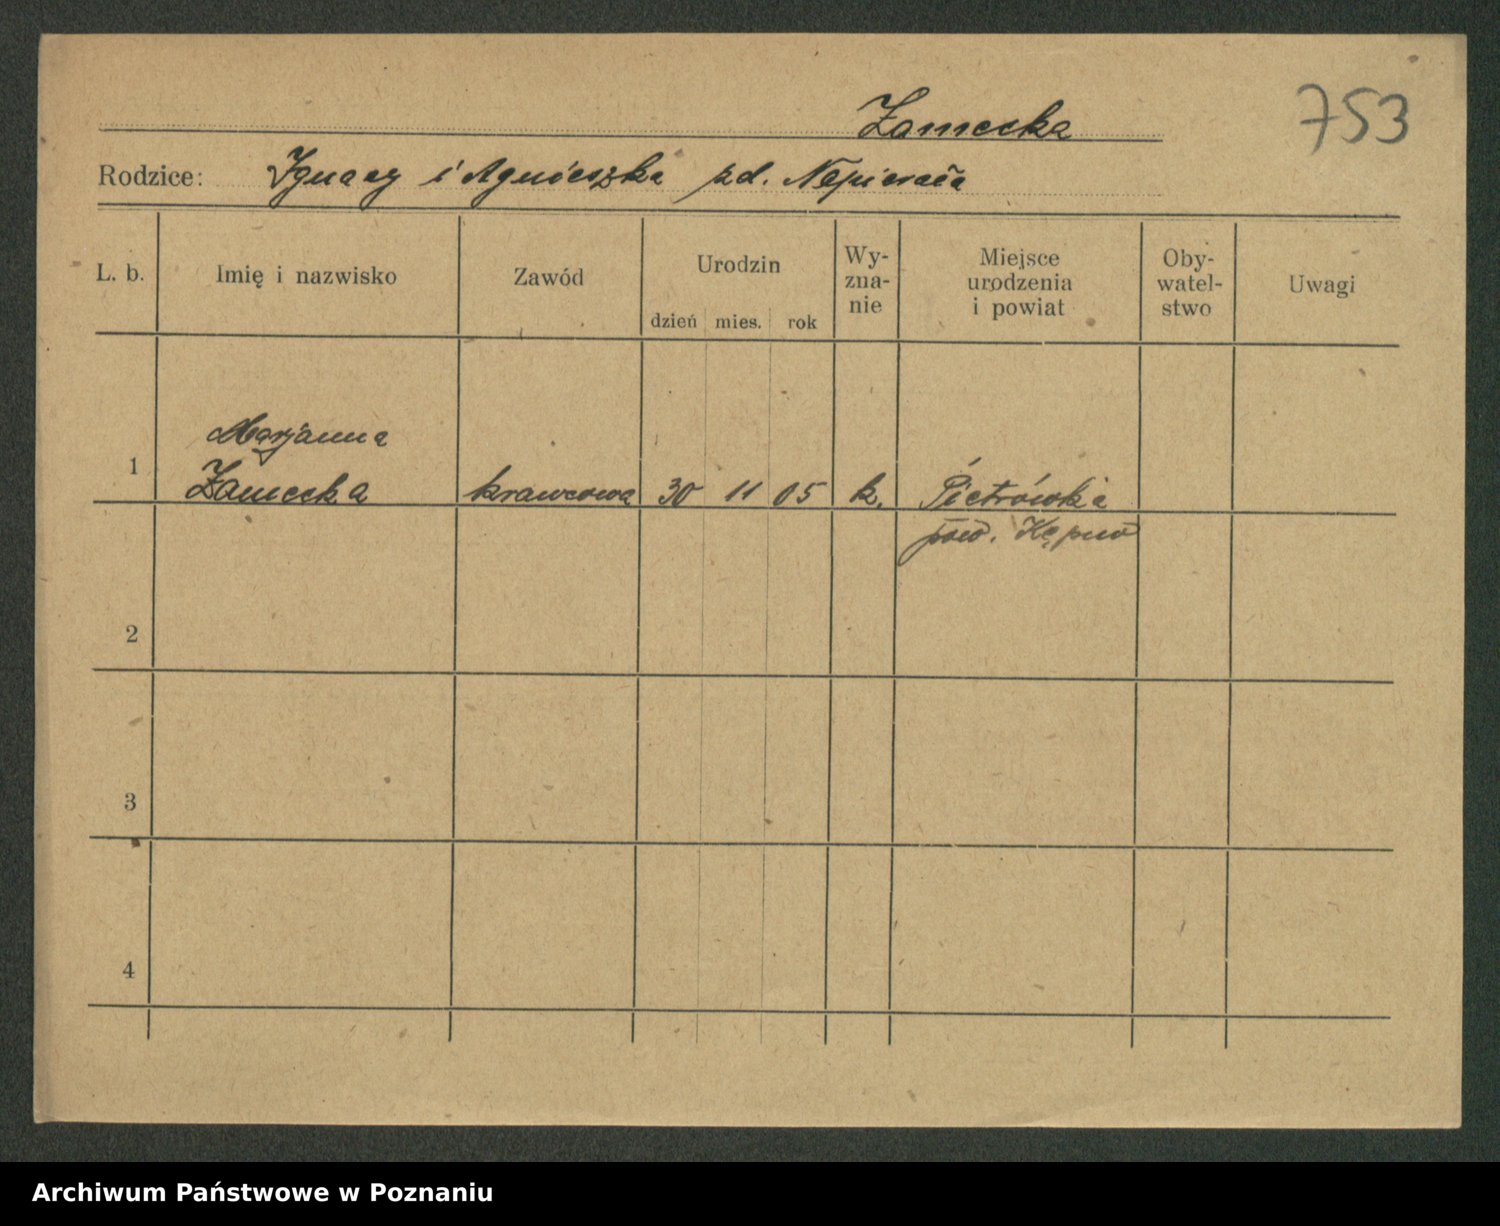 753
Zamecka
Rodzice: Ignacy i Agnieszka zd. Napierała
L. b.
Imię i nazwisko
Zawód
Urodzin
dzień mies. rok
Wy-
zna-
nie
Miejsce
urodzenia
i powiat
Oby-
watel-
stwo
Uwagi
Marjanna
1 Zamecka krawcowa 30 11 05 k. Pietrówka
pow. Kępno
2
3
4
Archiwum Państwowe w Poznaniu